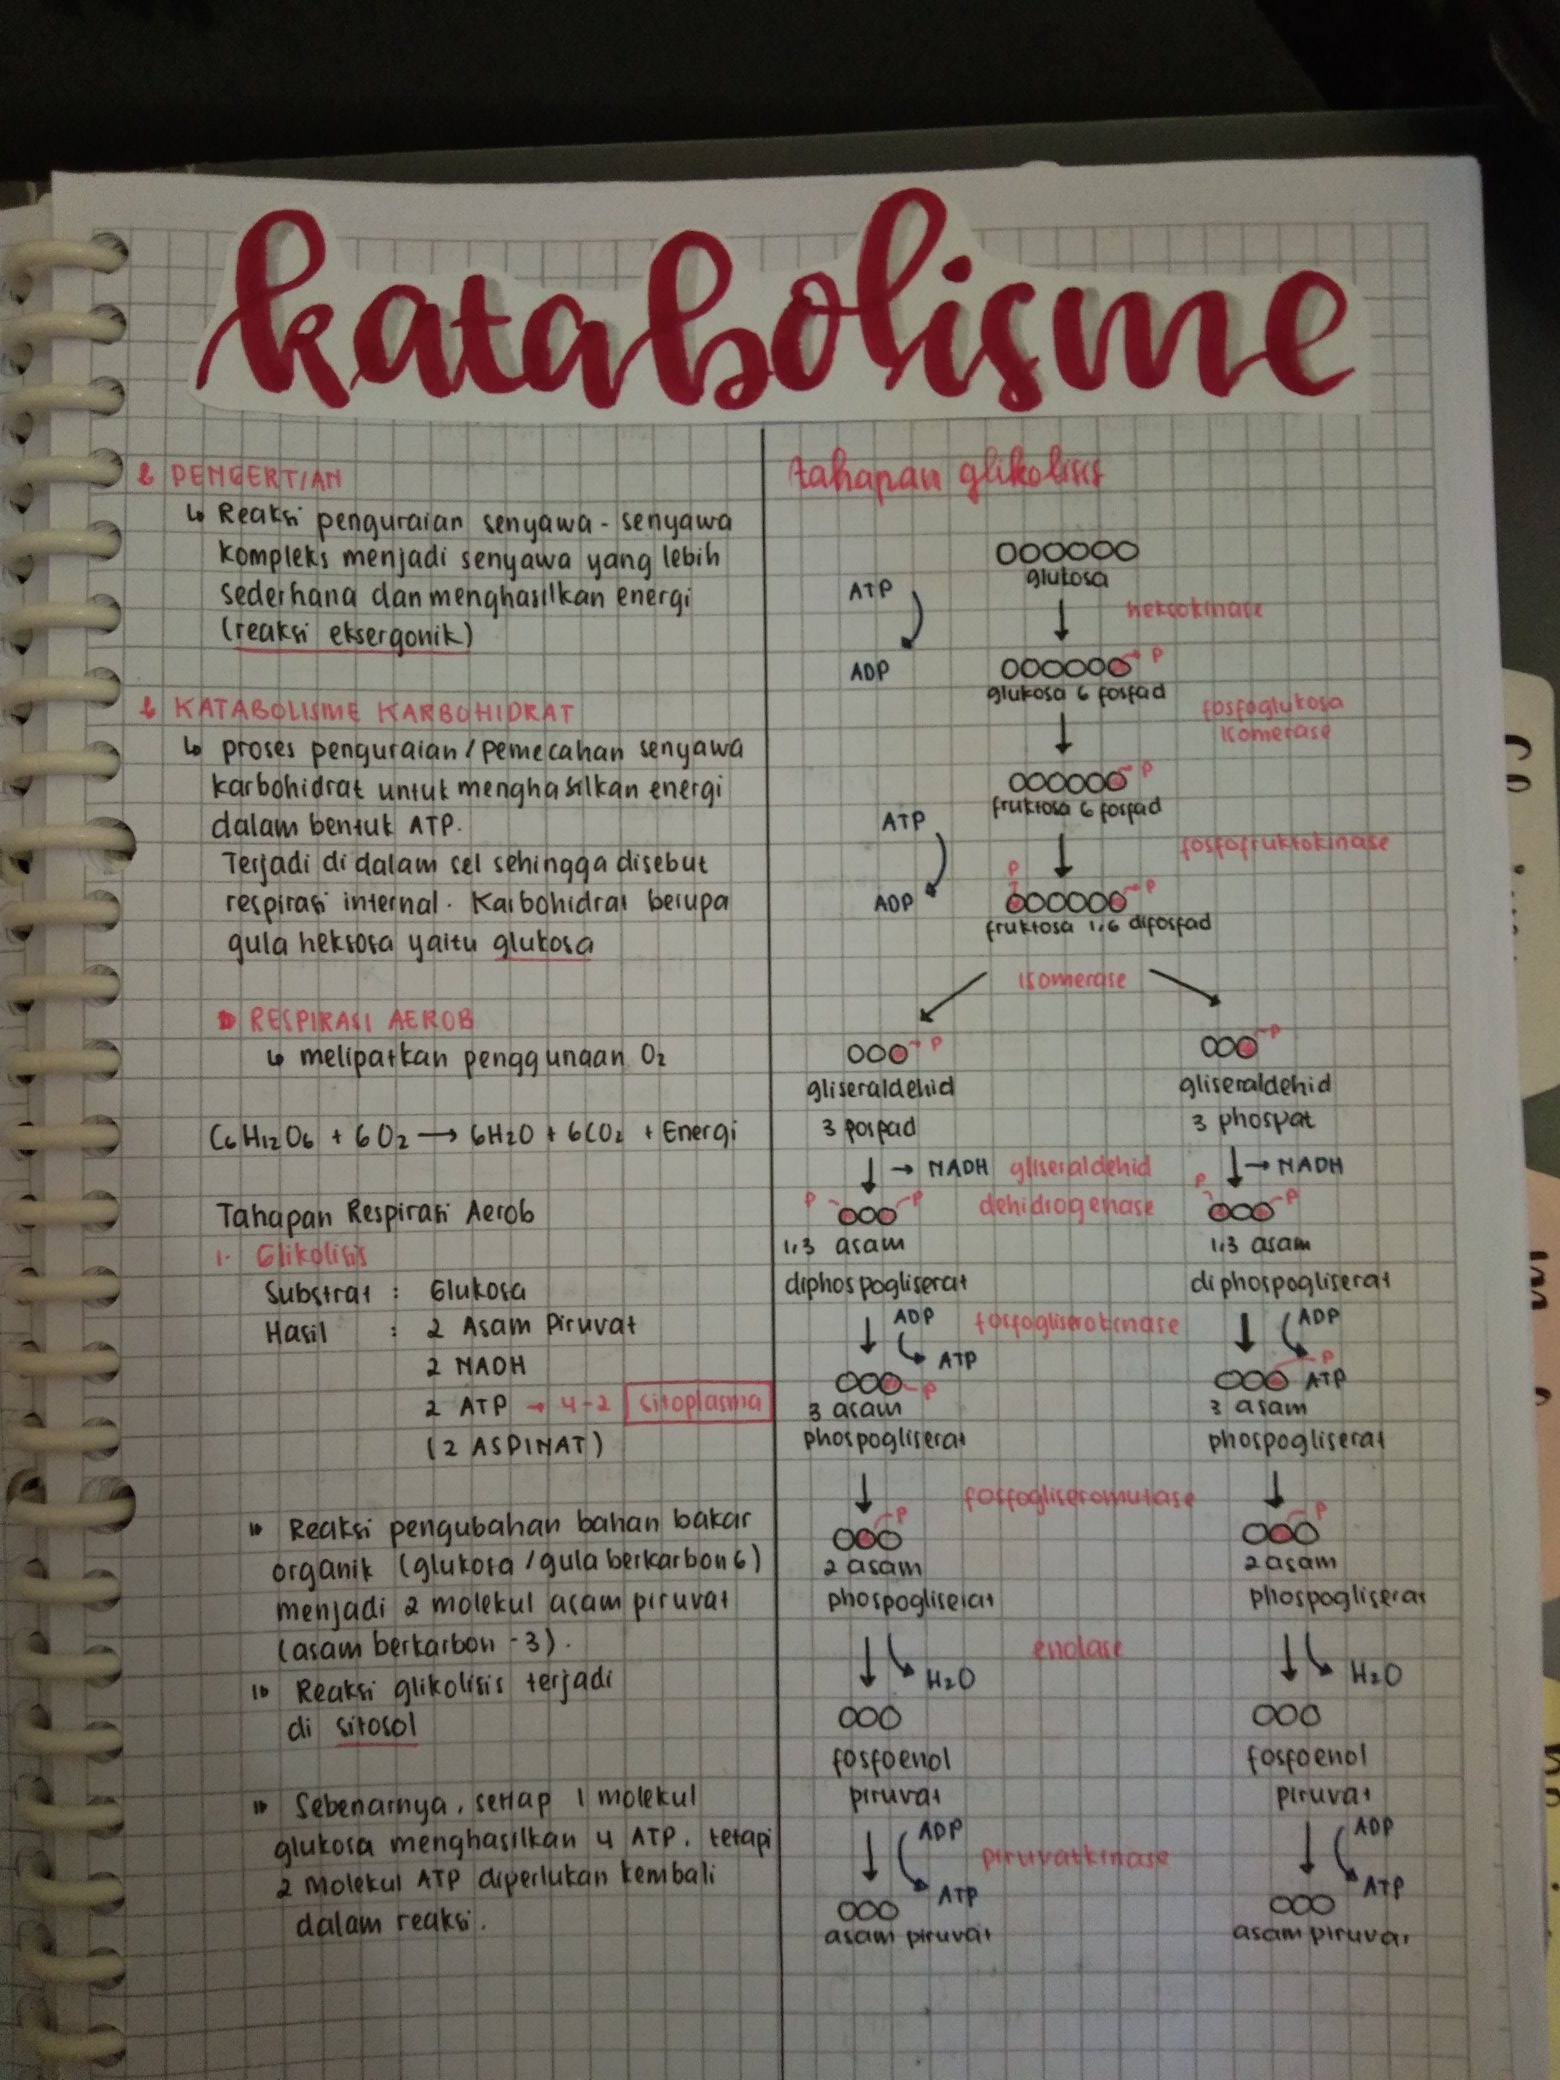 katabolisme
PENGERTIAN
↳ Reaksi penguraian senyawa - senyawa
kompleks menjadi senyawa yang lebih
sederhana dan menghasilkan energi
(reaksi eksergonik)
KATABOLISME KARBOHIDRAT
↳ proses penguraian/pemecahan senyawa
karbohidrat untuk menghasilkan energi
dalam bentuk ATP.
Terjadi di dalam sel sehingga disebut
respirasi internal. Karbohidrat berupa
gula heksosa yaitu glukosa
RESPIRASI AEROB
↳ melipatkan penggunaan O₂
C₆H₁₂O₆ + 6O₂ → 6H₂O + 6CO₂ + Energi
Tahapan Respirasi Aerob
1. Glikolisis
Substrat : Glukosa
Hasil : 2 Asam Piruvat
2 NADH
2 ATP → 4-2 sitoplasma
(2 ASPINAT)
Reaksi pengubahan bahan bakar
organik (glukosa/gula berkarbon 6)
menjadi 2 molekul asam piruvat
(asam berkarbon -3).
Reaksi glikolisis terjadi
di sitosol
Sebenarnya, setiap 1 molekul
glukosa menghasilkan 4 ATP, tetapi
2 molekul ATP diperlukan kembali
dalam reaksi.
tahapan glikolisis
glukosa
ATP heksokinase
ADP P
glukosa 6 fosfad
fosfoglukosa
isomerase
P
fruktosa 6 fosfad
ATP fosfofruktokinase
ADP P P
fruktosa 1,6 difosfad
isomerase
P P
gliseraldehid gliseraldehid
3 fosfad 3 phospat
→ NADH gliseraldehid → NADH
P P dehidrogenase P P
1,3 asam 1,3 asam
diphospogliserat diphospogliserat
ADP fosfogliserokinase ADP
ATP P
P ATP
3 asam 3 asam
phospogliserat phospogliserat
fosfogliseromutase
P P
2 asam 2 asam
phospogliserat phospogliserat
enolase
H₂O H₂O
fosfoenol fosfoenol
piruvat piruvat
ADP piruvatkinase ADP
ATP ATP
asam piruvat asam piruvat